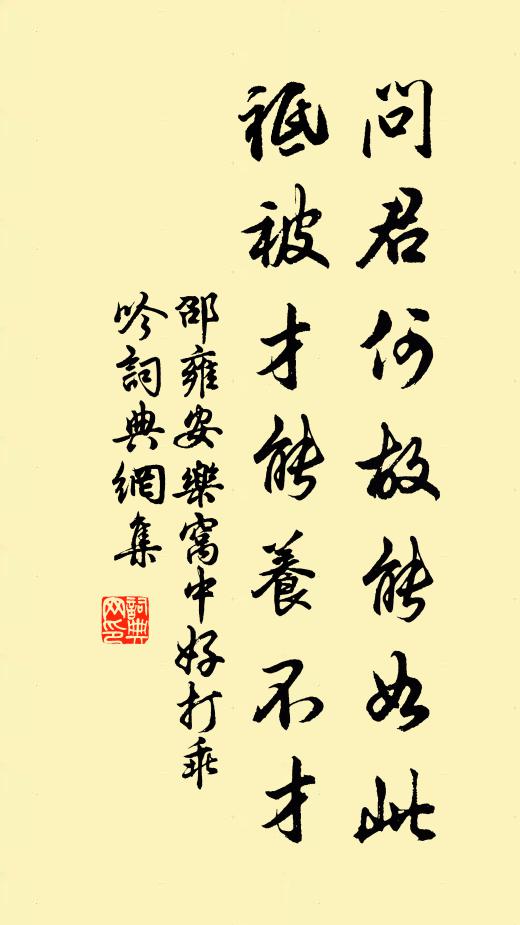 問君何故能如此
祗被才能養不才
邵雍安樂窩中好打乖
吟詞典網集
詞典
网印